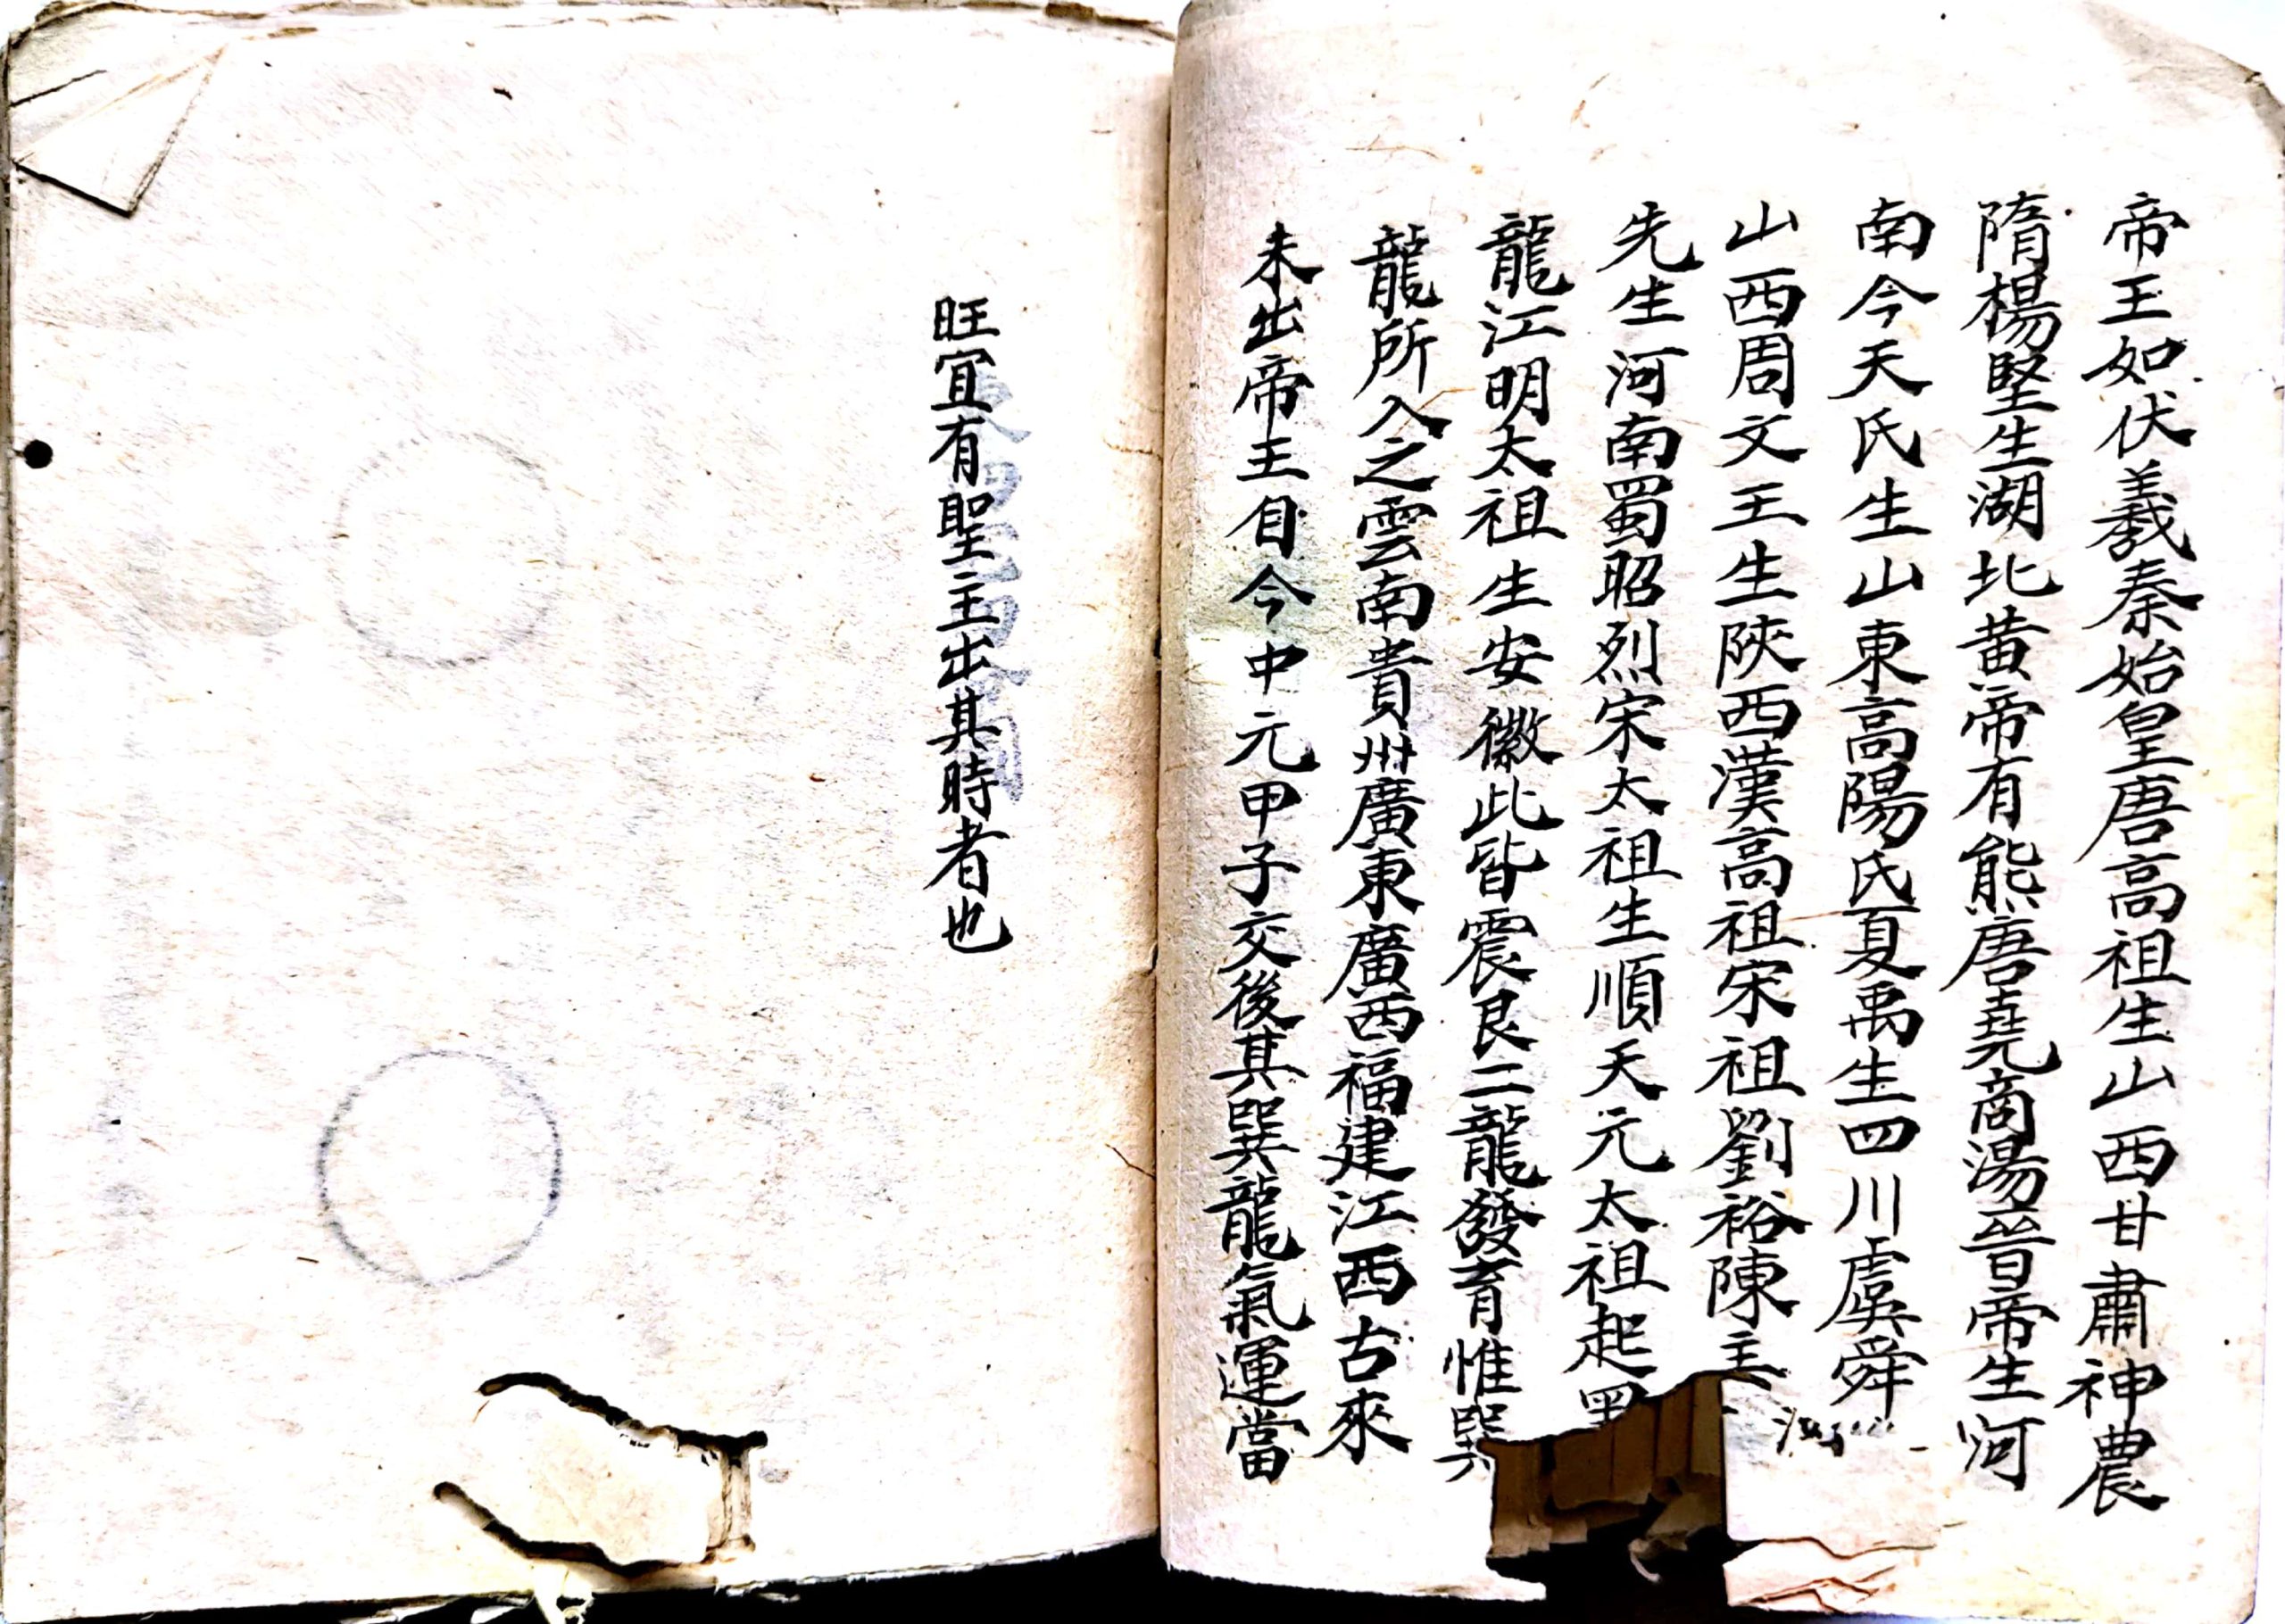 帝王如伏羲秦始皇唐高祖生山西甘肅神農
隋楊堅生湖北黄帝有熊唐堯商湯晉帝生河
南今天氏生山東高陽氏夏禹生四川虞舜
山西周文王生陝西漢高祖宋祖劉裕陳主
先生河南蜀昭烈宋太祖生順天元太祖起
龍江明太祖生安徽此皆震艮二龍發育惟巽
龍所入之雲南貴州廣東廣西福建江西古來
未出帝王自今中元甲子交後其巽龍氣運當
旺宜有聖主出其時者也